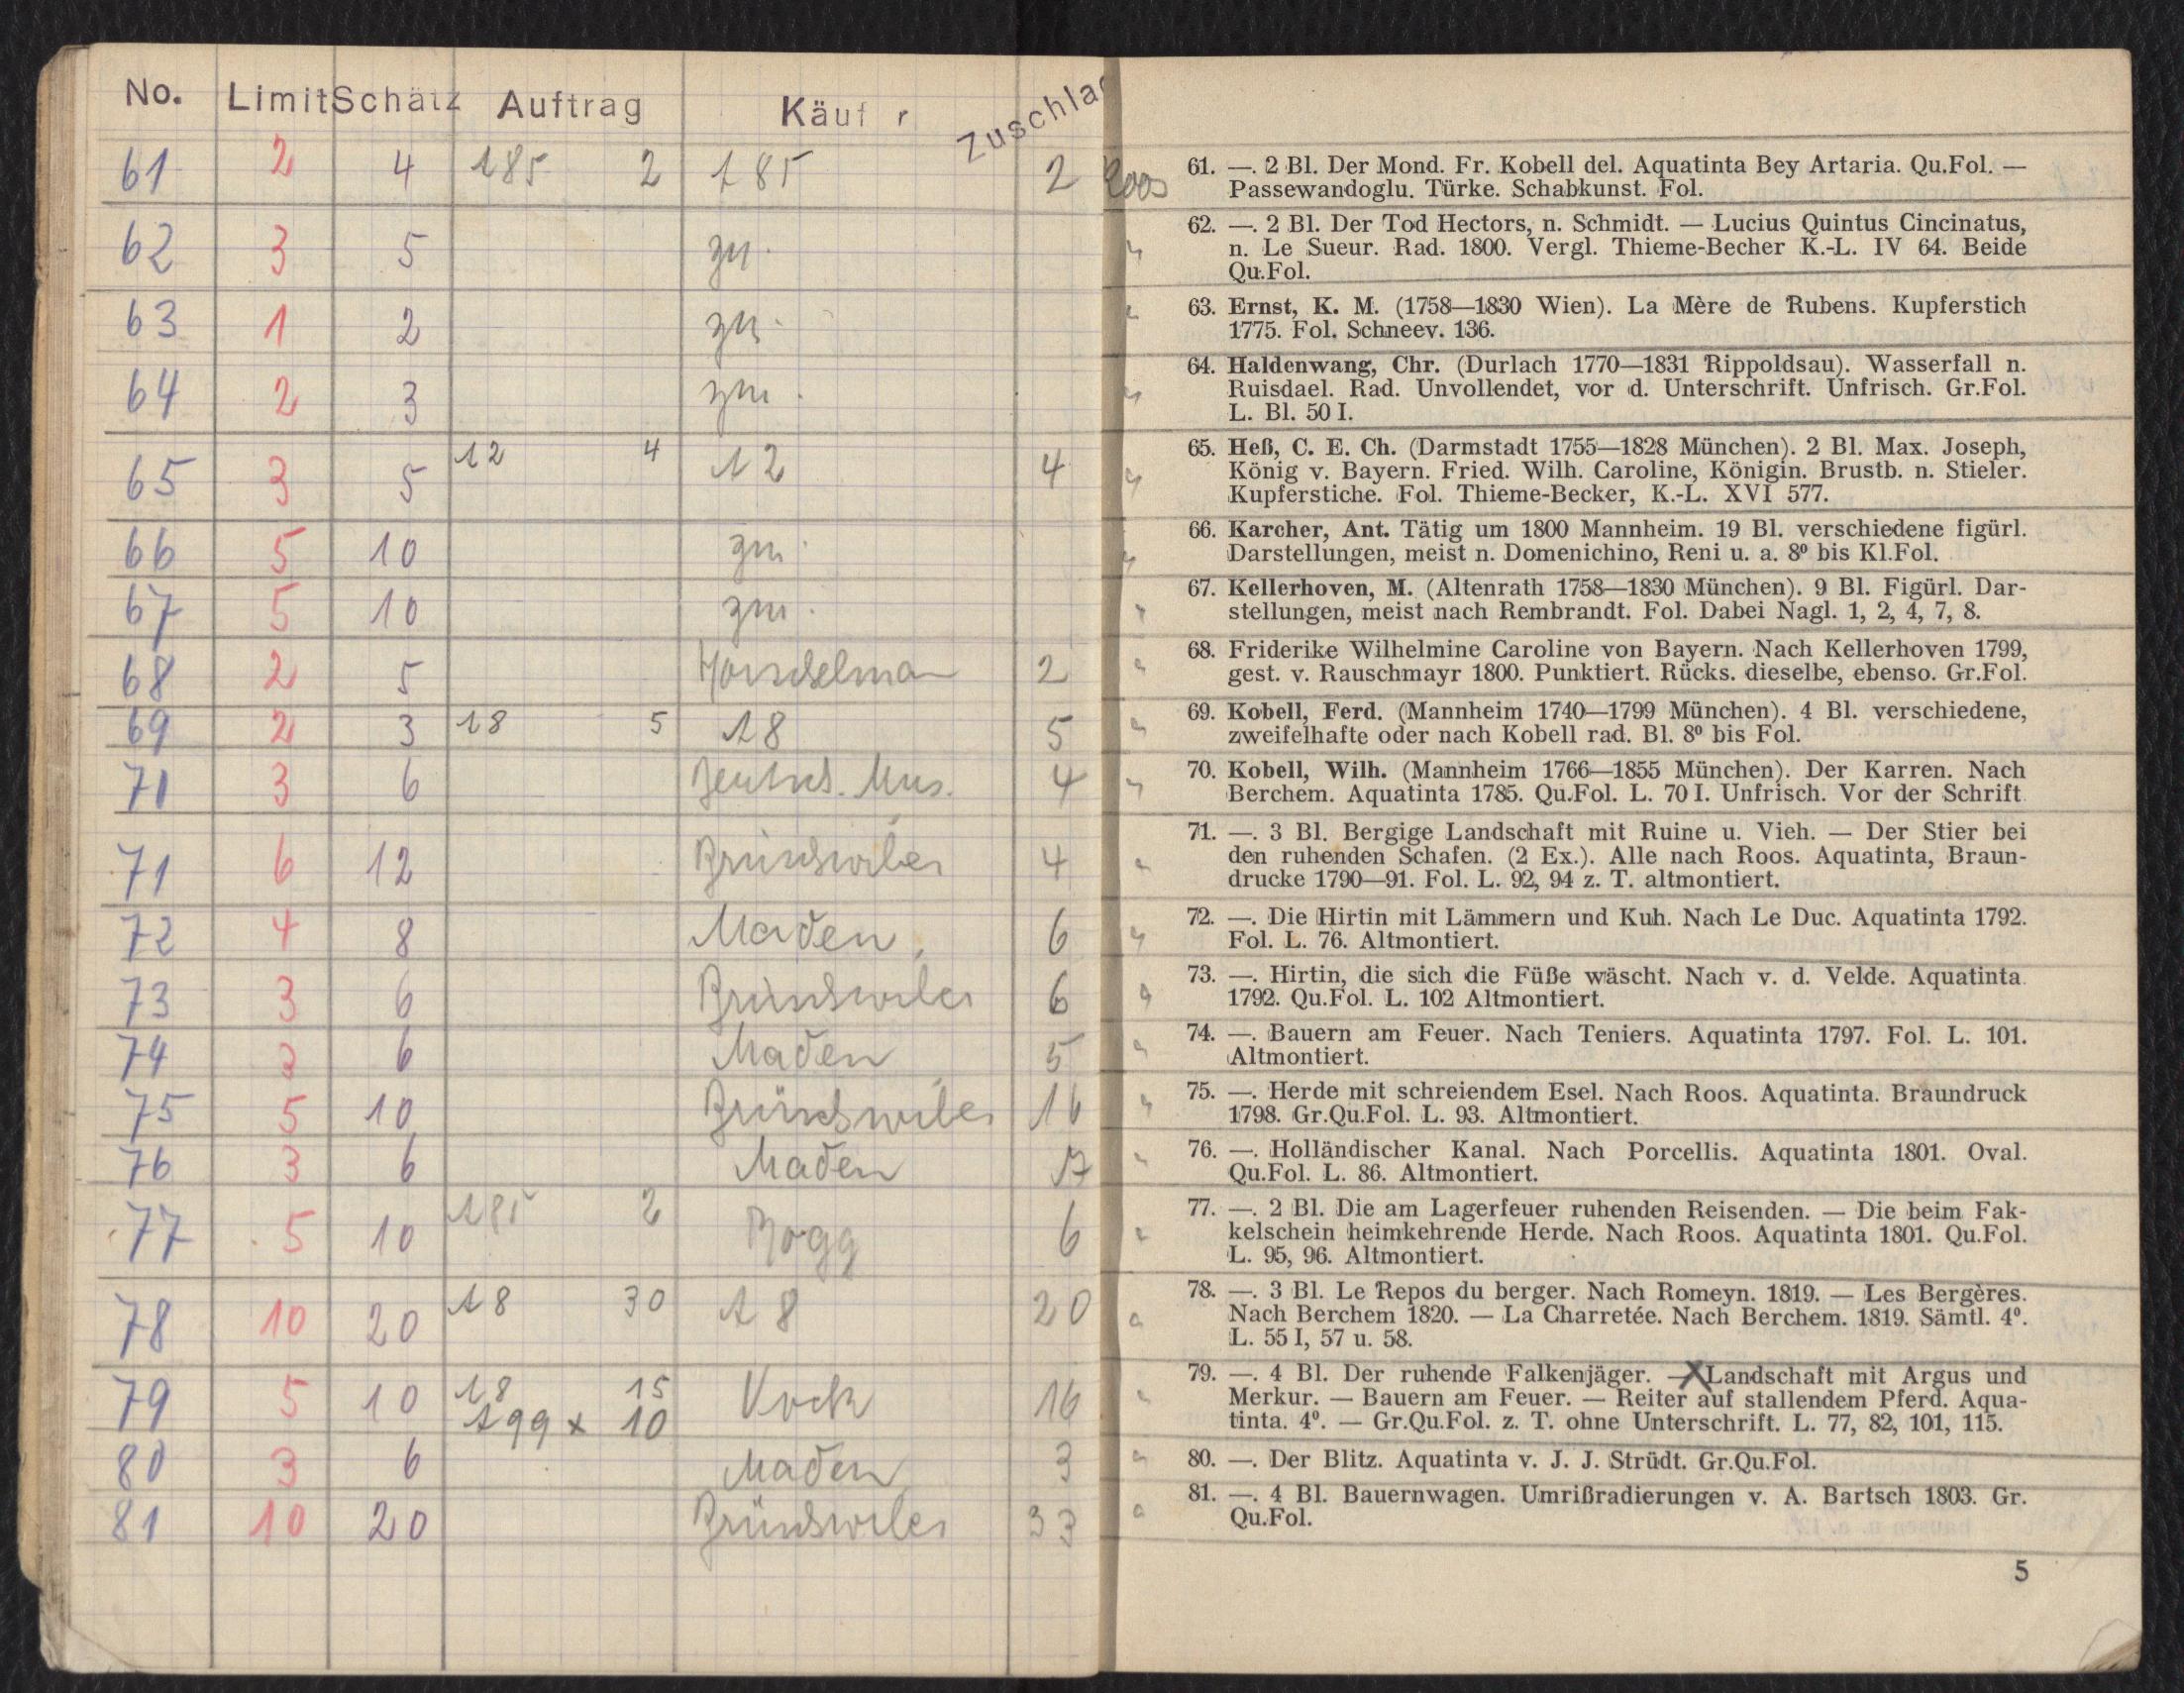 No. Limit Schätz Auftrag Käuf r Zuschlag
61 2 4 185 2 185 2 Roos
62 3 5 zu.
63 1 2 zu.
64 2 3 zu.
65 3 5 12 4 12 4
66 5 10 zu.
67 5 10 zu.
68 2 5 2
69 2 3 18 5 18 5
71 3 6 Deutsch. Mus. 4
71 6 12 4
72 4 8 Maden 6
73 3 6 6
74 3 6 Maden 5
75 5 10 16
76 3 6 Maden 17
77 5 10 185 2 Bogg 6
78 10 20 18 30 18 20
79 5 10 18 15 Vock 16
199 x 10
80 3 6 Maden 3
81 10 20 33
61. —. 2 Bl. Der Mond. Fr. Kobell del. Aquatinta Bey Artaria. Qu.Fol. —
Passewandoglu. Türke. Schabkunst. Fol.
62. —. 2 Bl. Der Tod Hectors, n. Schmidt. — Lucius Quintus Cincinatus,
n. Le Sueur. Rad. 1800. Vergl. Thieme-Becher K.-L. IV 64. Beide
Qu.Fol.
63. Ernst, K. M. (1758—1830 Wien). La Mère de Rubens. Kupferstich
1775. Fol. Schneev. 136.
64. Haldenwang, Chr. (Durlach 1770—1831 Rippoldsau). Wasserfall n.
Ruisdael. Rad. Unvollendet, vor d. Unterschrift. Unfrisch. Gr.Fol.
L. Bl. 50 I.
65. Heß, C. E. Ch. (Darmstadt 1755—1828 München). 2 Bl. Max. Joseph,
König v. Bayern. Fried. Wilh. Caroline, Königin. Brustb. n. Stieler.
Kupferstiche. Fol. Thieme-Becker, K.-L. XVI 577.
66. Karcher, Ant. Tätig um 1800 Mannheim. 19 Bl. verschiedene figürl.
Darstellungen, meist n. Domenichino, Reni u. a. 8º bis Kl.Fol.
67. Kellerhoven, M. (Altenrath 1758—1830 München). 9 Bl. Figürl. Dar-
stellungen, meist nach Rembrandt. Fol. Dabei Nagl. 1, 2, 4, 7, 8.
68. Friderike Wilhelmine Caroline von Bayern. Nach Kellerhoven 1799,
gest. v. Rauschmayr 1800. Punktiert. Rücks. dieselbe, ebenso. Gr.Fol.
69. Kobell, Ferd. (Mannheim 1740—1799 München). 4 Bl. verschiedene,
zweifelhafte oder nach Kobell rad. Bl. 8º bis Fol.
70. Kobell, Wilh. (Mannheim 1766—1855 München). Der Karren. Nach
Berchem. Aquatinta 1785. Qu.Fol. L. 70 I. Unfrisch. Vor der Schrift
71. —. 3 Bl. Bergige Landschaft mit Ruine u. Vieh. — Der Stier bei
den ruhenden Schafen. (2 Ex.). Alle nach Roos. Aquatinta, Braun-
drucke 1790—91. Fol. L. 92, 94 z. T. altmontiert.
72. —. Die Hirtin mit Lämmern und Kuh. Nach Le Duc. Aquatinta 1792.
Fol. L. 76. Altmontiert.
73. —. Hirtin, die sich die Füße wäscht. Nach v. d. Velde. Aquatinta
1792. Qu.Fol. L. 102 Altmontiert.
74. —. Bauern am Feuer. Nach Teniers. Aquatinta 1797. Fol. L. 101.
Altmontiert.
75. —. Herde mit schreiendem Esel. Nach Roos. Aquatinta. Braundruck
1798. Gr.Qu.Fol. L. 93. Altmontiert.
76. —. Holländischer Kanal. Nach Porcellis. Aquatinta 1801. Oval.
Qu.Fol. L. 86. Altmontiert.
77. —. 2 Bl. Die am Lagerfeuer ruhenden Reisenden. — Die beim Fak-
kelschein heimkehrende Herde. Nach Roos. Aquatinta 1801. Qu.Fol.
L. 95, 96. Altmontiert.
78. —. 3 Bl. Le Repos du berger. Nach Romeyn. 1819. — Les Bergères.
Nach Berchem 1820. — La Charretée. Nach Berchem. 1819. Sämtl. 4º.
L. 55 I, 57 u. 58.
79. —. 4 Bl. Der ruhende Falkenjäger. — X Landschaft mit Argus und
Merkur. — Bauern am Feuer. — Reiter auf stallendem Pferd. Aqua-
tinta. 4º. — Gr.Qu.Fol. z. T. ohne Unterschrift. L. 77, 82, 101, 115.
80. —. Der Blitz. Aquatinta v. J. J. Strüdt. Gr.Qu.Fol.
81. —. 4 Bl. Bauernwagen. Umrißradierungen v. A. Bartsch 1803. Gr.
Qu.Fol.
5